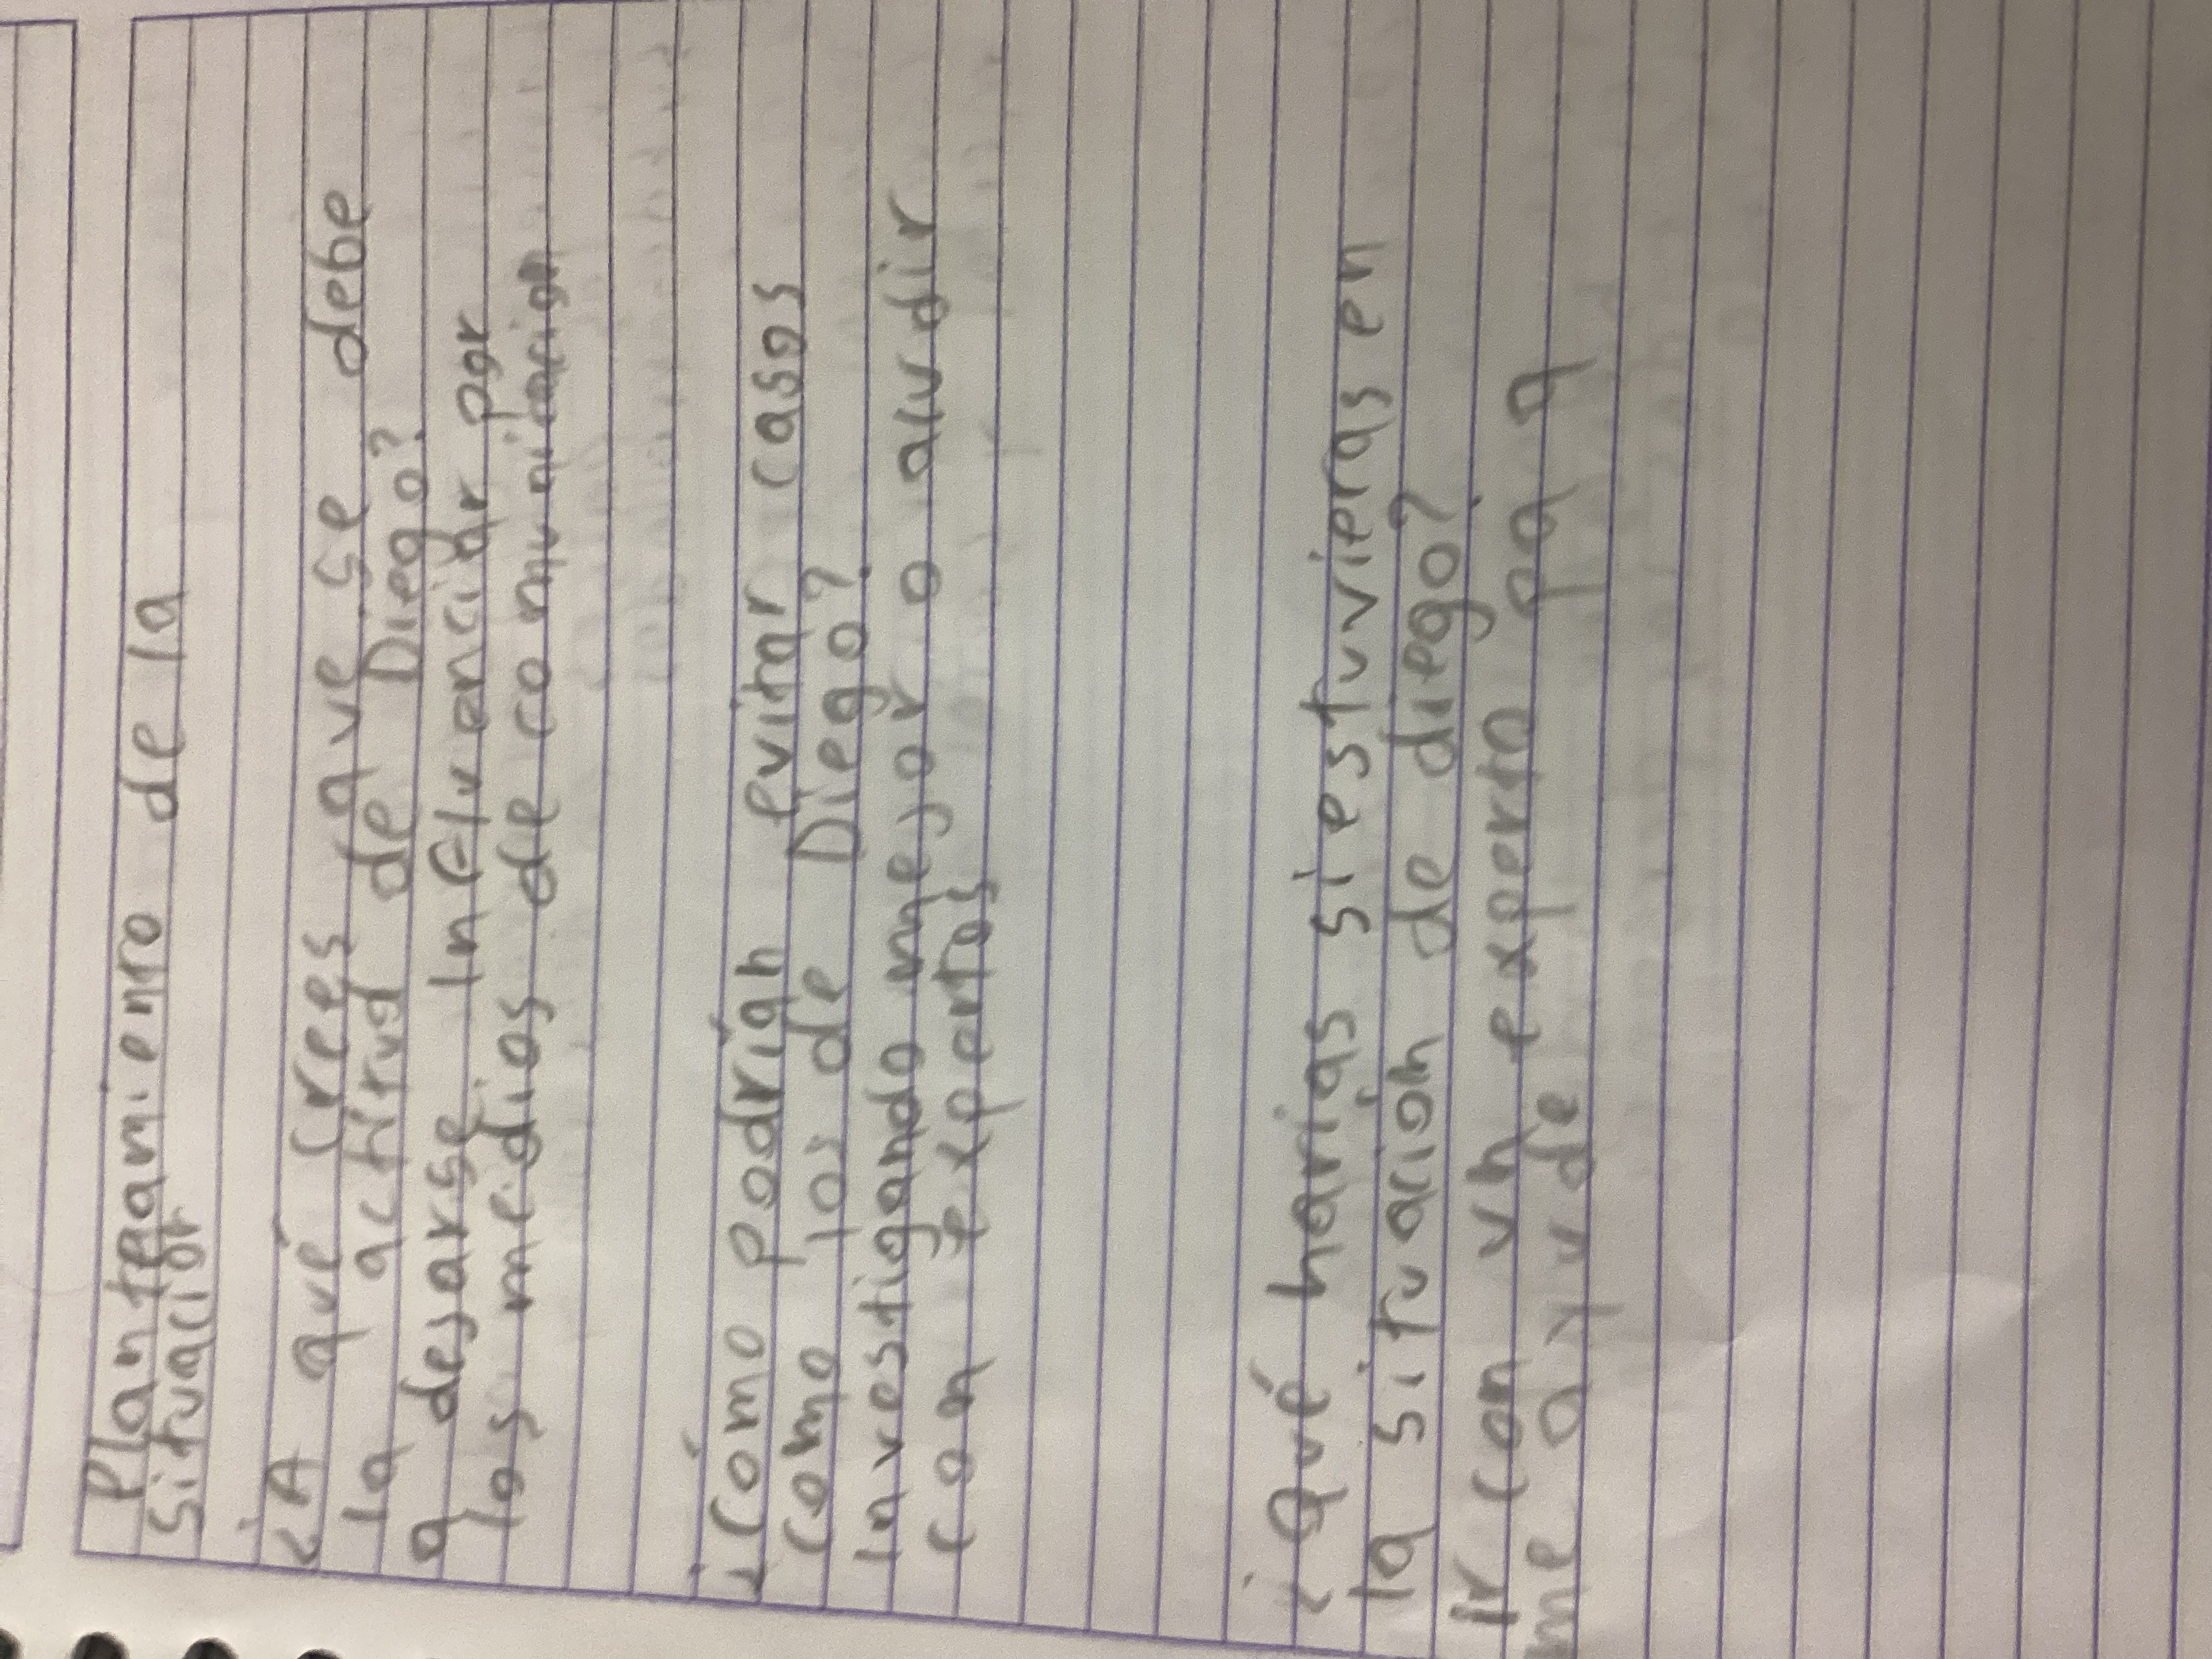 Planteamiento de la
situación
¿A qué crees que se debe
la actitud de Diego?
a dejarse Influenciar por
los medios de comunicacion
¿Cómo podrían evitar casos
como los de Diego?
Investigando mejor o acudir
con expertos
¿Qué harías si estuvieras en
la situación de diego?
ir con un experto pa q
me ayude